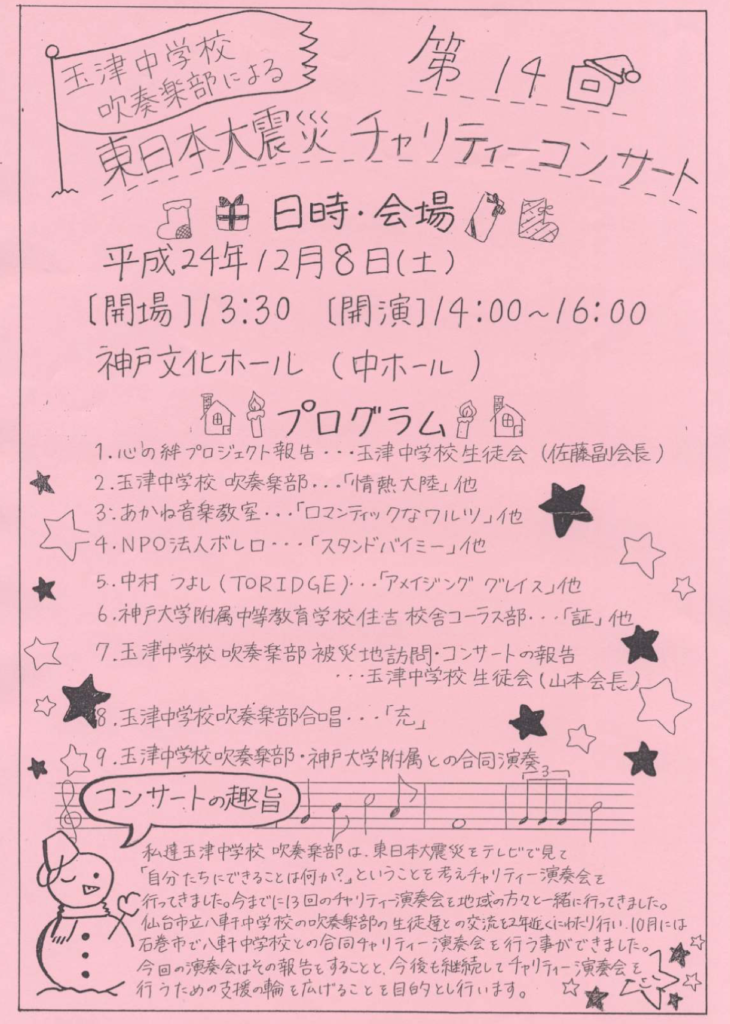 玉津中学校
吹奏楽部による
第14回
東日本大震災 チャリティーコンサート
日時・会場
平成24年12月8日(土)
[開場]13:30 [開演]14:00~16:00
神戸文化ホール (中ホール)
プログラム
1.心の絆プロジェクト報告・・・玉津中学校生徒会(佐藤副会長)
2.玉津中学校 吹奏楽部・・・「情熱大陸」他
3.あかね音楽教室・・・「ロマンティックなワルツ」他
4.NPO法人ボレロ・・・「スタンドバイミー」他
5.中村 つよし(TORIDGE)・・・「アメイジング グレイス」他
6.神戸大学附属中等教育学校住吉 校舎コーラス部・・・「証」他
7.玉津中学校 吹奏楽部 被災地訪問・コンサートの報告
・・・玉津中学校 生徒会(山本会長)
8.玉津中学校吹奏楽部合唱・・・「充」
9.玉津中学校吹奏楽部・神戸大学附属との合同演奏
3
コンサートの趣旨
私達玉津中学校 吹奏楽部は、東日本大震災をテレビで見て
「自分たちにできることは何か?」ということを考えチャリティー演奏会を
行ってきました。今までに13回のチャリティー演奏会を地域の方々と一緒に行ってきました。
仙台市立八軒中学校の吹奏楽部の生徒達との交流を2年近くにわたり行い、10月には
石巻市で八軒中学校との合同チャリティー演奏会を行う事ができました。
今回の演奏会はその報告をすることと、今後も継続してチャリティー演奏会を
行うための支援の輪を広げることを目的とし行います。